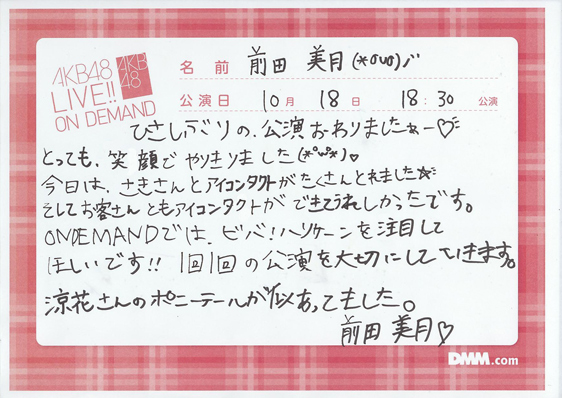 AKB48
LIVE!!
ON DEMAND
AKB
48
名 前 前田 美月(*σωσ)ノ゛
公演日 10月 18日 18:30 公演
ひさしぶりの、公演おわりましたぁー♡
とっても、笑顔でやりきりました(*°ω°*)♡
今日は、さきさんとアイコンタクトがたくさんとれました☆
そしてお客さんともアイコンタクトができてうれしかったです。
ONDEMANDでは、ビバ！ハリケーンを注目して
ほしいです!! 1回1回の公演を大切にしていきます。
涼花さんのポニーテールが似あってました。
前田 美月♡
DMM.com